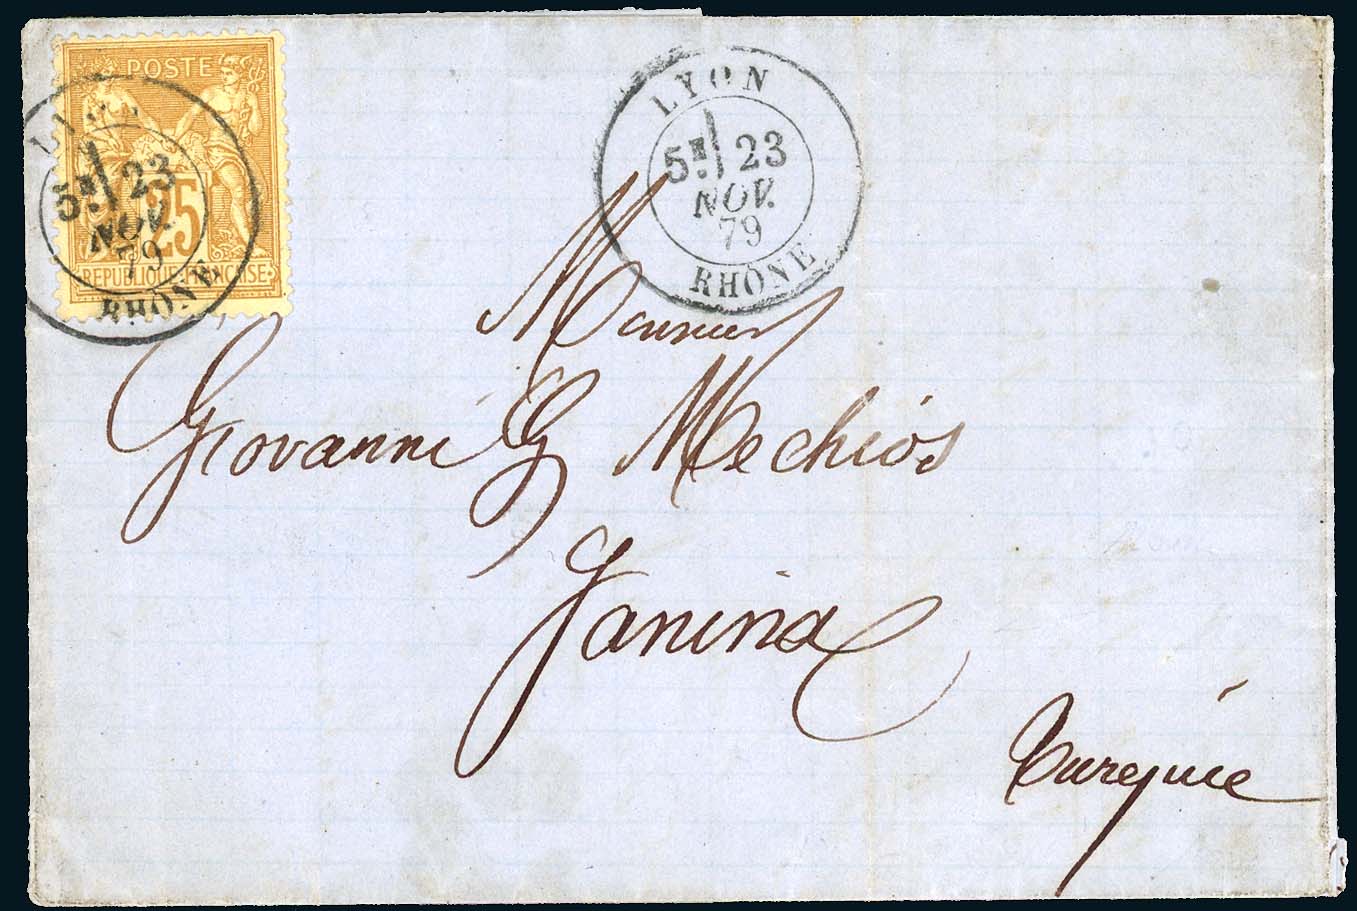 POSTE
25
REPUBLIQUE FRANÇAISE
LYON
5E 23
NOV.
79
RHÔNE
LYON
5E 23
NOV.
79
RHÔNE
Monsieur
Giovanni G Mechiós
Janina
Turquie